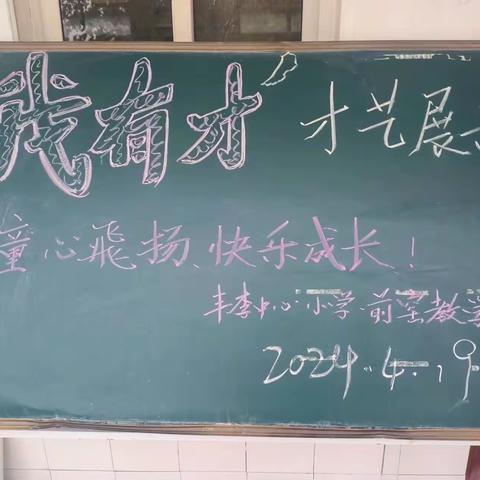 我有才 才艺展
童心飞扬、快乐成长！
丰李中心小学前窑教学
2024.4.19